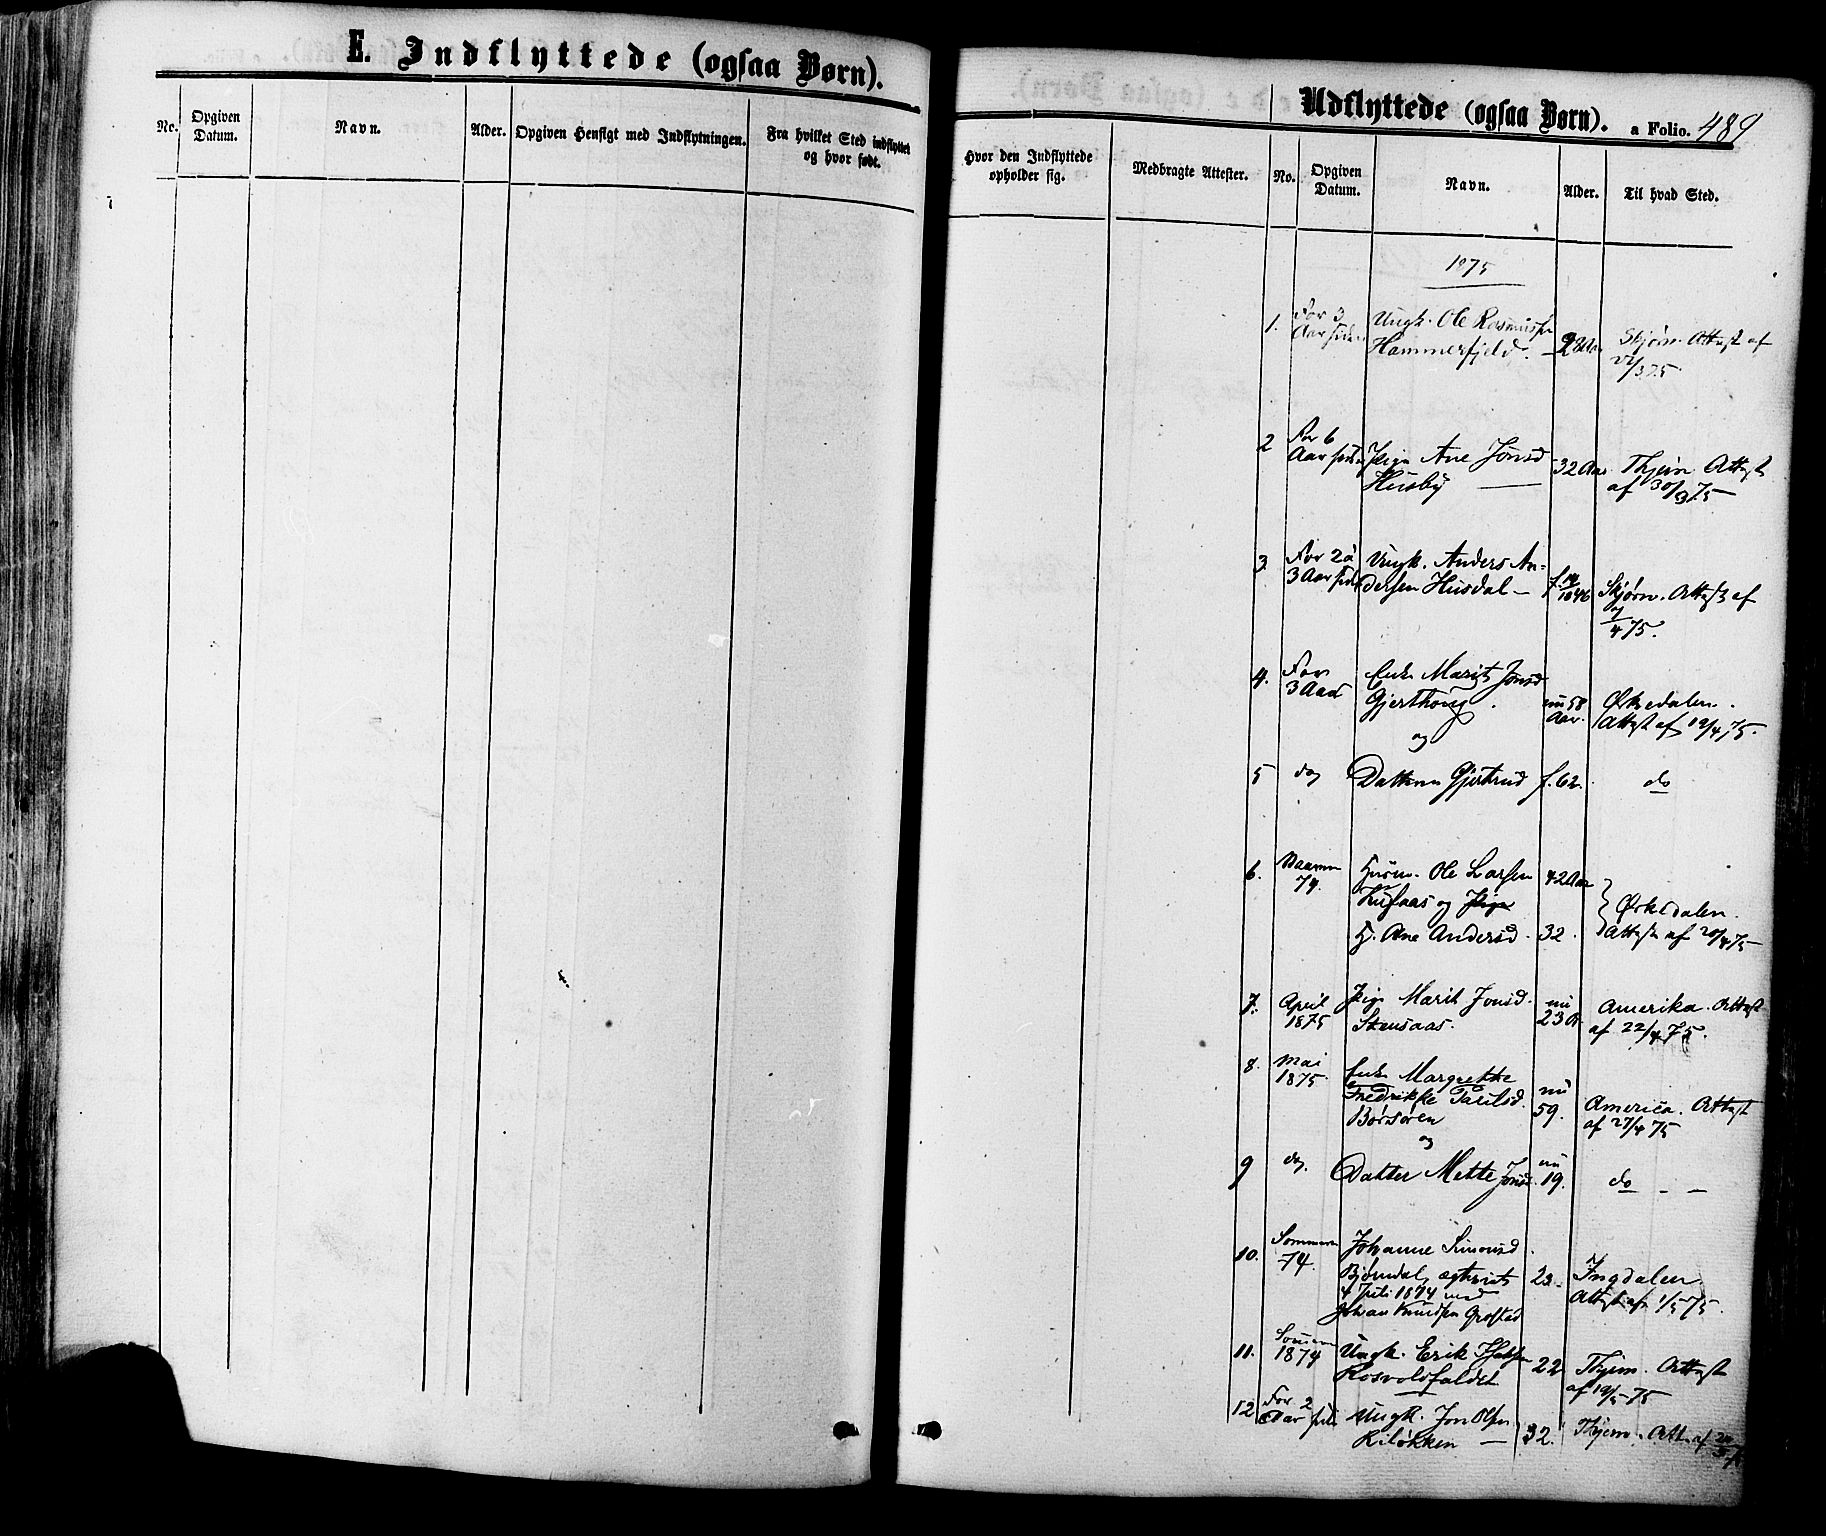 E. Indflyttede (ogsaa Børn).
No.
Opgiven Datum.
Navn.
Alder.
Opgiven Hensigt med Indflytningen.
Fra hvilket Sted indflyttet og hvor født.
Udflyttede (ogsaa Børn). a Folio. 489
Hvor den Indflyttede opholder sig.
Medbragte Attester.
No.
Opgiven Datum.
Navn.
Alder.
Til hvad Sted.
1875
1. For 3 Ungk. Ole Rasmussen
Aar siden Hammerfjeld. 28 Aar Skjørn. Attest af
/3 75.
2 For 6
Aar siden Pige Ane Jonsd 32 Aar Thjem Attest
Husby af 30/3 75
3. For 2 à Ungk. Anders An-
3 Aar siden dersen Husdal f. 10 46 Skjørn. Attest af
4 75.
4. For Enke Marit Jonsd
3 Aar Gjerthaug. nu 58 Aar. Ørkedalen.
og Attest af 19/4 75.
5 do Datteren Gjertrud f. 62. do
6. 74. Husm. Ole Larsen 42 Aar
og Pige Ørkedalen.
H. Ane Andersd. 32. Attest af 20/4 75
7. April Pige Marit Jonsd. nu Amerika. Attest
1875 Stensaas. 23 A. af 22/4 75.
8. Mai Enke Margrethe
1875. Fredrikke nu America. Attest
Børsøren 59. af 27/4 75
og
9 do. Datter Mette Jonsd. nu 19. do
10. Sommeren Johanne Simonsd.
74. Bjørndal, ægteviet 23. Ingdalen.
4 Juli 1874 med Attest af 1/5 75.
Johan Knudsen Grøstad
11. Sommeren Ungk. Erik 22 Thjem. Attest
1874 Rosvoldfaldet af 19/5 75
12 For 2 Ungk. Jon Olsen
Aar siden 32. Thjem. Att. af